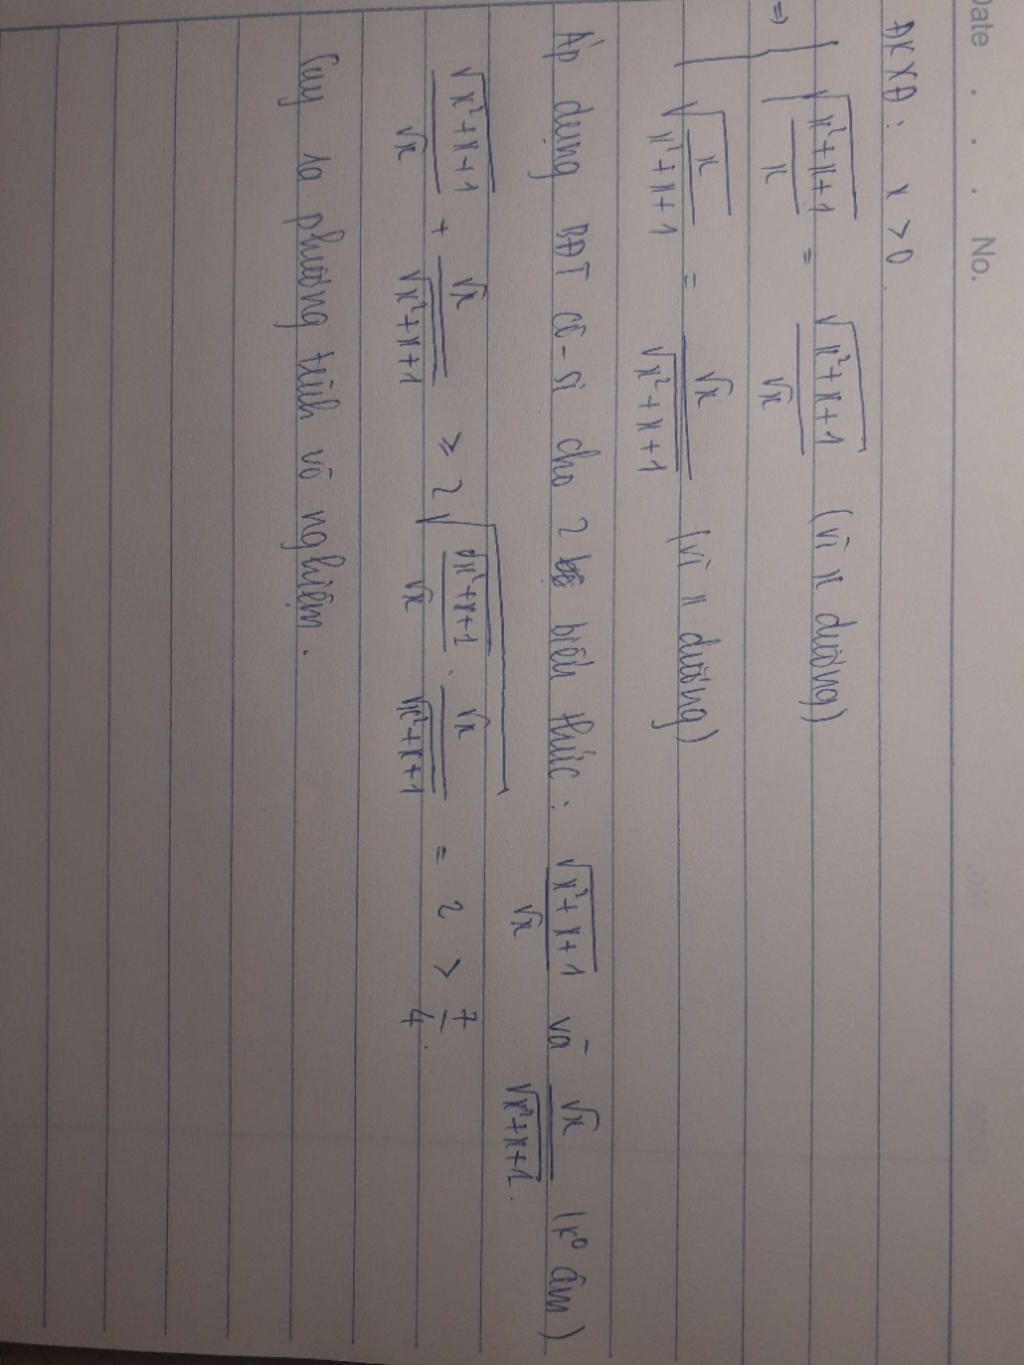 Date . . . No.
ĐKXĐ: x > 0.
=> { √((x²+x+1)/x) = √(x²+x+1)/√x (vì x dương)
√(x/(x²+x+1)) = √x/√(x²+x+1) (vì x dương)
Áp dụng BĐT cô-si cho 2 biểu thức: √(x²+x+1)/√x và √x/√(x²+x+1) (kº âm)
√(x²+x+1)/√x + √x/√(x²+x+1) ≥ 2√(√(x²+x+1)/√x . √x/√(x²+x+1)) = 2 > 7/4.
Suy ra phương trình vô nghiệm.